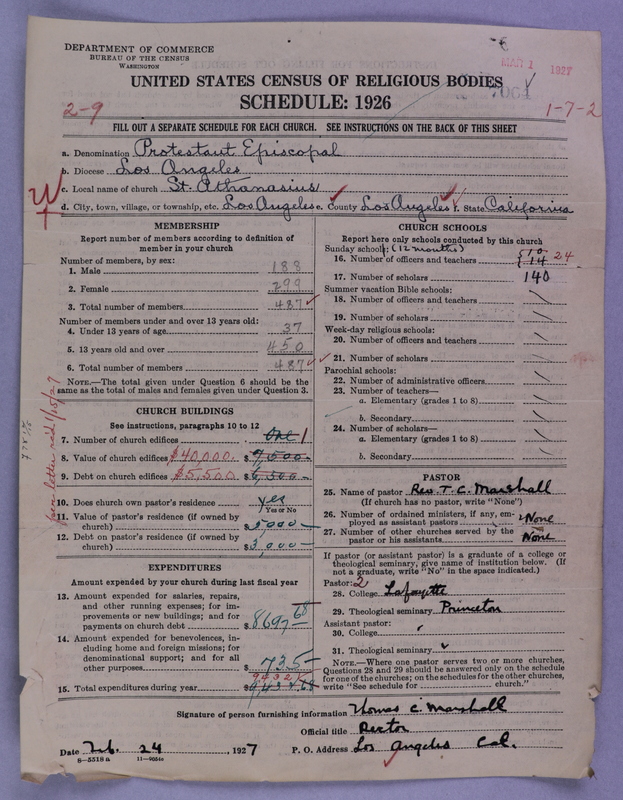 DEPARTMENT OF COMMERCE
BUREAU OF THE CENSUS
WASHINGTON
MAR 1 1927
7064
UNITED STATES CENSUS OF RELIGIOUS BODIES
SCHEDULE: 1926
2-9
1-7-2
FILL OUT A SEPARATE SCHEDULE FOR EACH CHURCH. SEE INSTRUCTIONS ON THE BACK OF THIS SHEET
a. Denomination Protestant Episcopal
b. Diocese Los Angeles
c. Local name of church St. Athanasius
d. City, town, village, or township, etc. Los Angeles e. County Los Angeles f. State California
MEMBERSHIP
Report number of members according to definition of
member in your church
Number of members, by sex:
1. Male 188
2. Female 299
3. Total number of members 487
Number of members under and over 13 years old:
4. Under 13 years of age 37
5. 13 years old and over 450
6. Total number of members 487
NOTE.—The total given under Question 6 should be the
same as the total of males and females given under Question 3.
CHURCH BUILDINGS
See instructions, paragraphs 10 to 12
7. Number of church edifices one 1
8. Value of church edifices $40,000. $
9. Debt on church edifices $5,500. $
10. Does church own pastor's residence yes
Yes or No
11. Value of pastor's residence (if owned by
church) $5000—
12. Debt on pastor's residence (if owned by
church) $3,000—
per letter recd
EXPENDITURES
Amount expended by your church during last fiscal year
13. Amount expended for salaries, repairs,
and other running expenses; for im-
provements or new buildings; and for
payments on church debt $8697 68
14. Amount expended for benevolences, in-
cluding home and foreign missions; for
denominational support; and for all
other purposes $735—
9432
15. Total expenditures during year $
CHURCH SCHOOLS
Report here only schools conducted by this church
Sunday schools: (12 months)
16. Number of officers and teachers { 10 14 24
17. Number of scholars 140
Summer vacation Bible schools:
18. Number of officers and teachers
19. Number of scholars
Week-day religious schools:
20. Number of officers and teachers
21. Number of scholars
Parochial schools:
22. Number of administrative officers
23. Number of teachers—
a. Elementary (grades 1 to 8)
b. Secondary
24. Number of scholars—
a. Elementary (grades 1 to 8)
b. Secondary
PASTOR
25. Name of pastor Rev. T. C. Marshall
(If church has no pastor, write "None")
26. Number of ordained ministers, if any, em-
ployed as assistant pastors None
27. Number of other churches served by the
pastor or his assistants None
If pastor (or assistant pastor) is a graduate of a college or
theological seminary, give name of institution below. (If
not a graduate, write "No" in the space indicated.)
Pastor: 2
28. College Lafayette
29. Theological seminary Princeton
Assistant pastor:
30. College
31. Theological seminary
NOTE.—Where one pastor serves two or more churches,
Questions 28 and 29 should be answered only on the schedule
for one of the churches; on the schedules for the other churches,
write "See schedule for church."
Signature of person furnishing information Thomas C. Marshall
Official title Rector
Date Feb. 24, 1927 P. O. Address Los Angeles Cal.
8-5518a